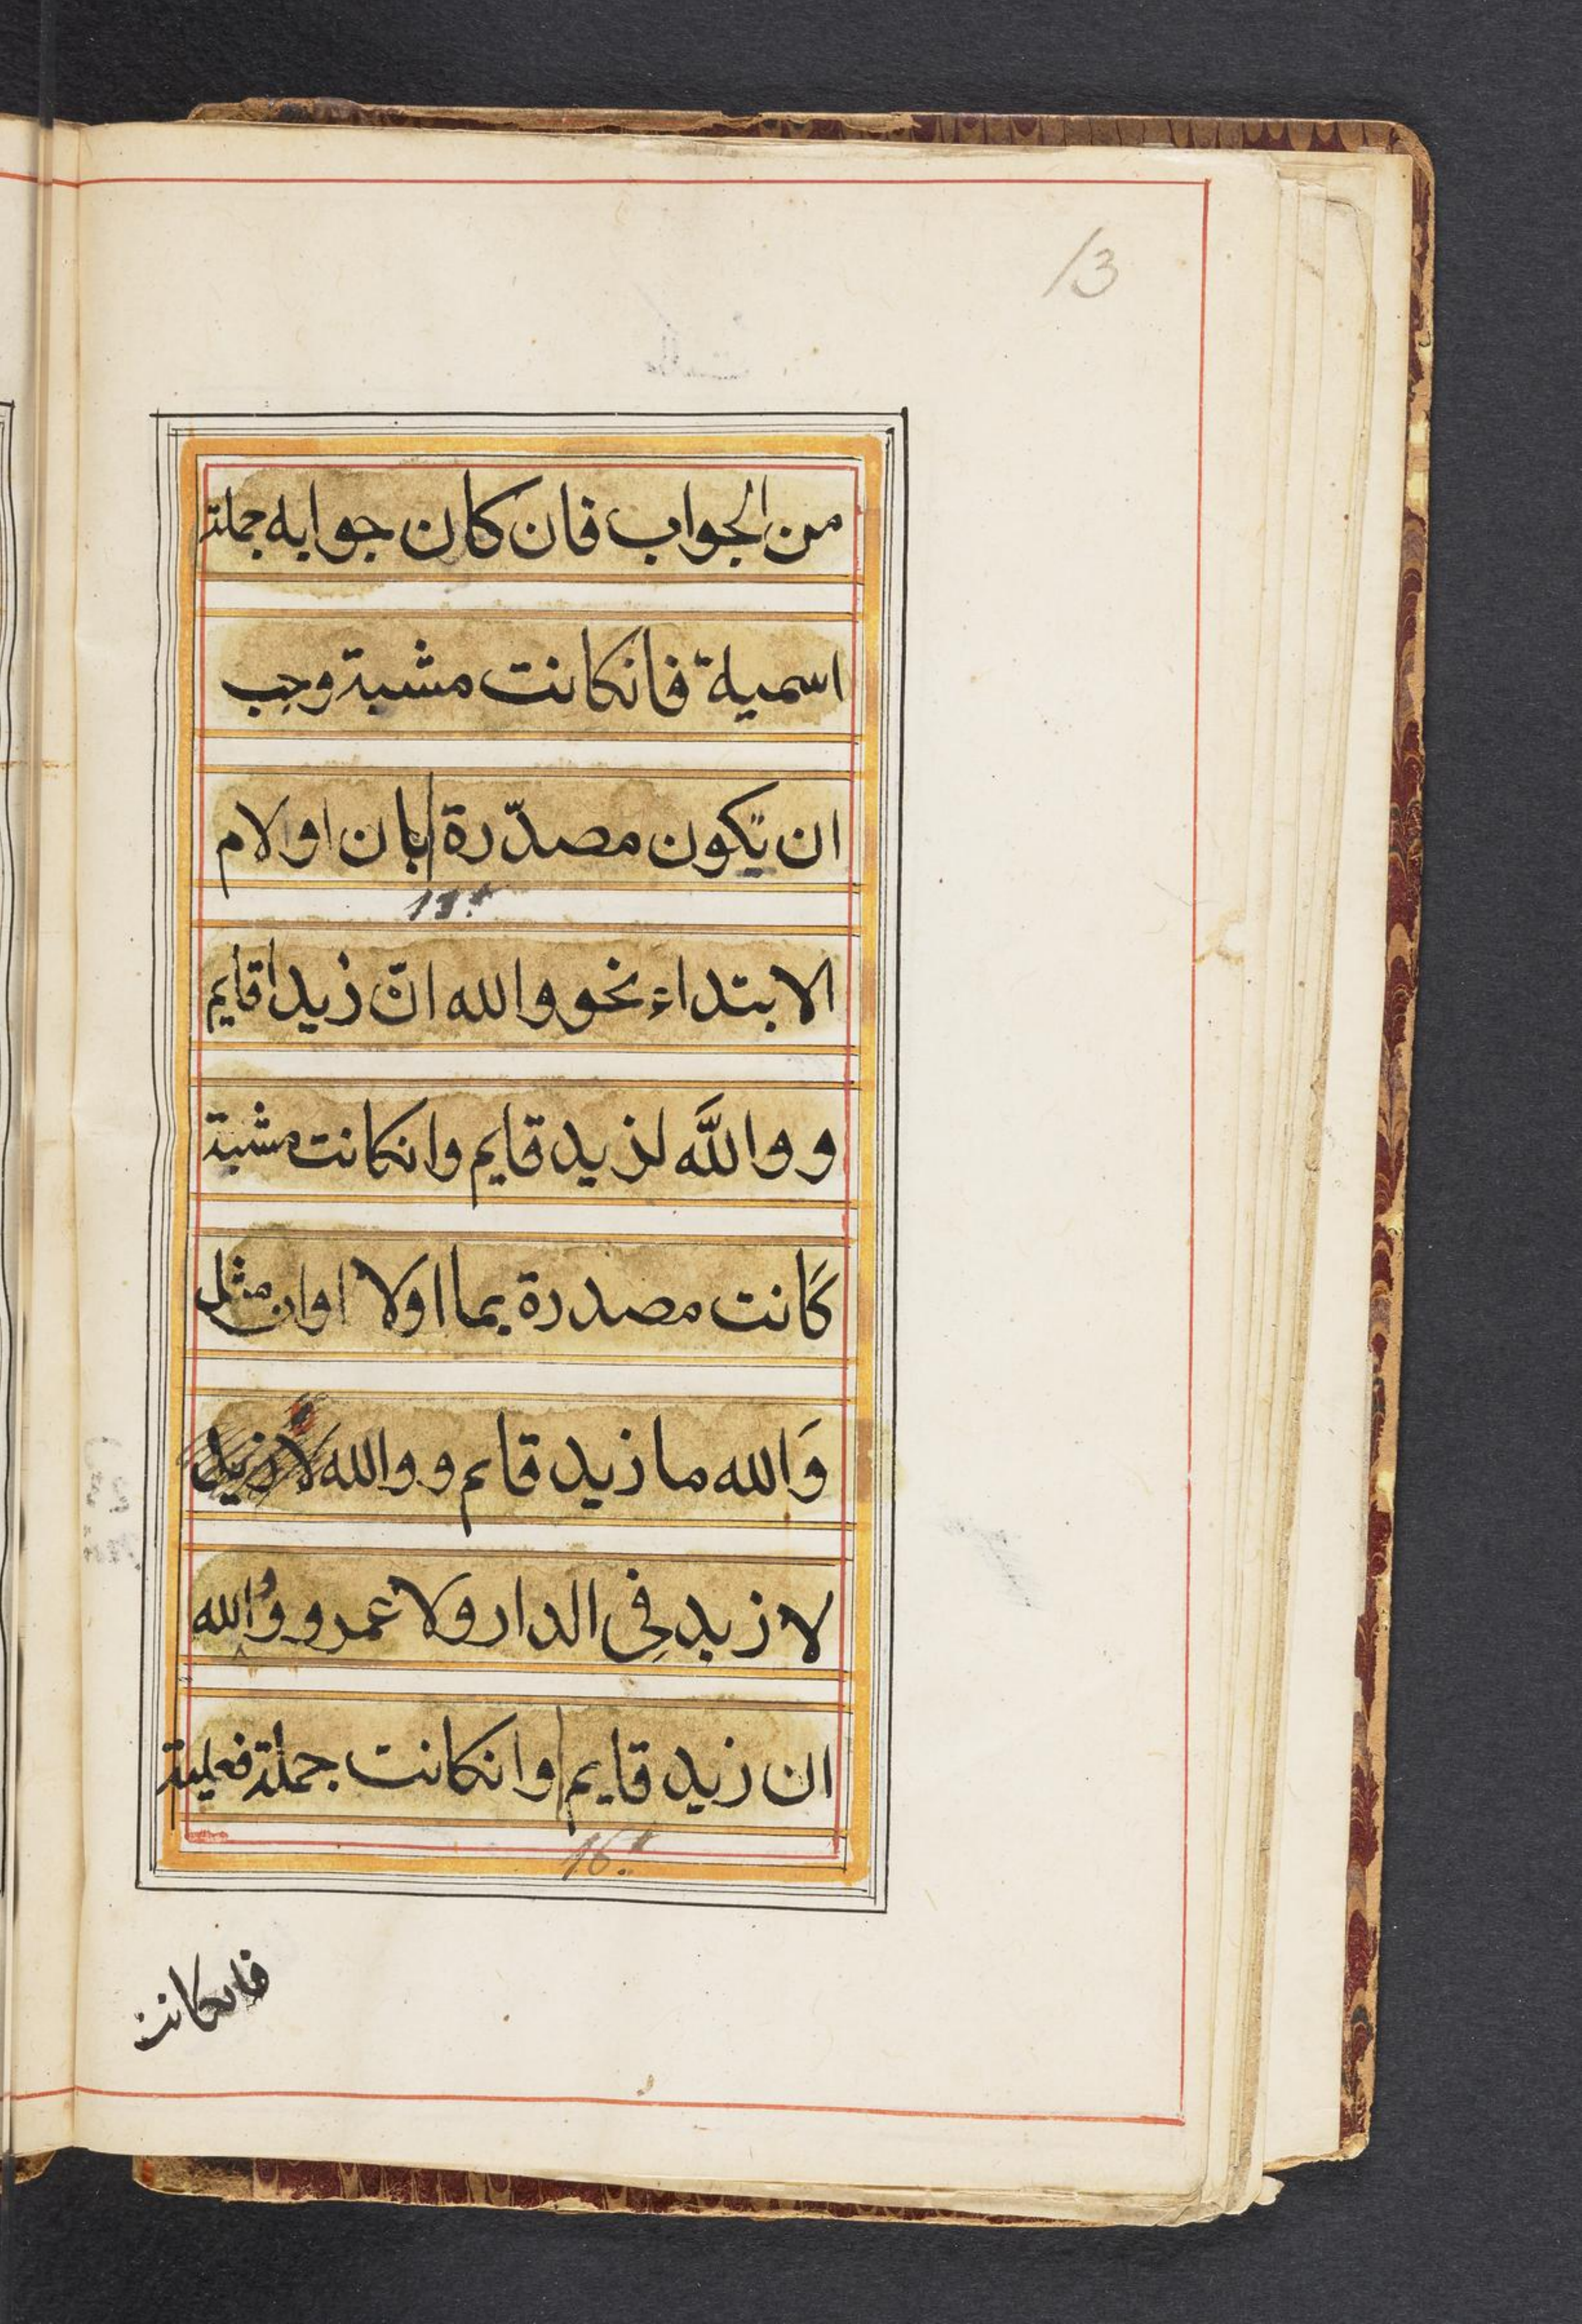 13
من الجواب فان كان جوابه جملة
اسمية فانكانت مشبة وجب
ان تكون مصدّرة بان او لام
الابتداء نحو والله انّ زيدا قايم
و والله لزيد قايم وانكانت مشبة
كانت مصدرة بما اولا اوان مثل
وَالله ما زيد قايم و والله لا زيد
لا زيد فى الدار ولا عمرو و والله
ان زيد قايم وانكانت جملة فعلية
فانكانت